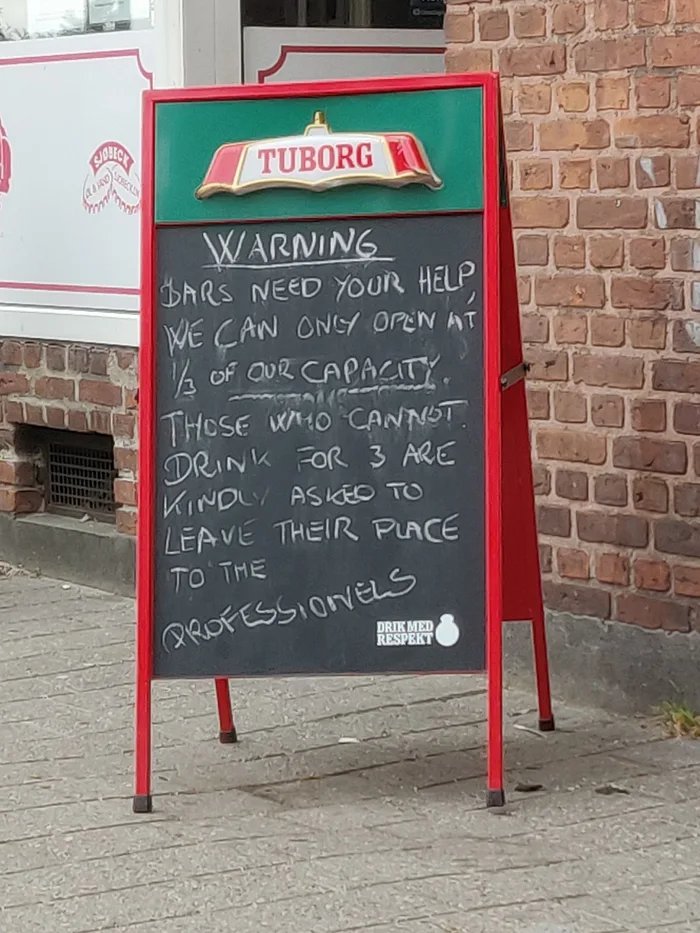 TUBORG
WARNING
BARS NEED YOUR HELP,
WE CAN ONLY OPEN AT
1/3 OF OUR CAPACITY.
THOSE WHO CANNOT.
DRINK FOR 3 ARE
KINDLY ASKED TO
LEAVE THEIR PLACE
TO THE
PROFESSIONELS
DRIK MED
RESPEKT
SJØBECK